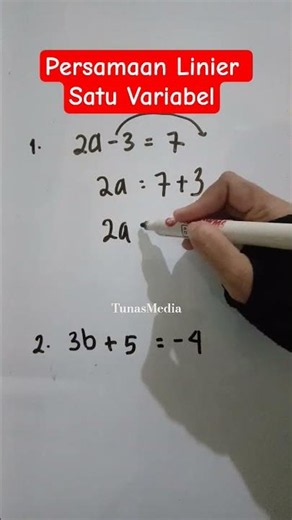 Persamaan Linier
Satu Variabel
1. 2a - 3 = 7
2a = 7 + 3
2a
TunasMedia
2. 3b + 5 = -4